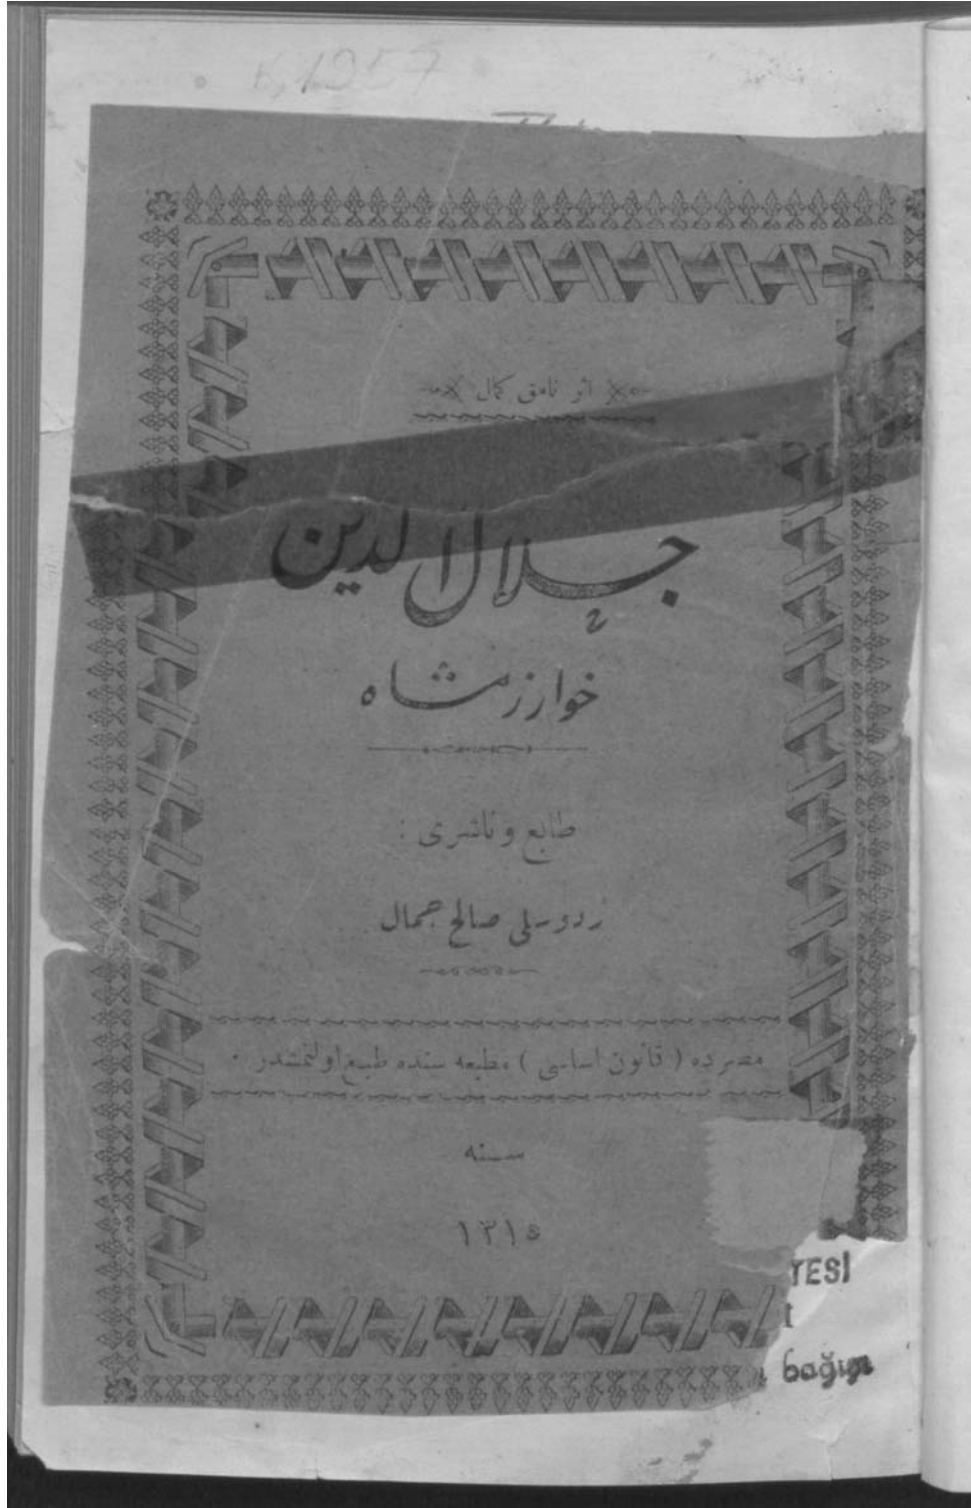 اثر نامق كمال
جلال الدين
خوارزمشاه
طابع و ناشرى :
ردوسلى صالح جمال
مصرده ( قانون اساسى ) مطبعه سنده طبع اولنمشدر .
سنه
١٣١٥
TESİ
bağışı